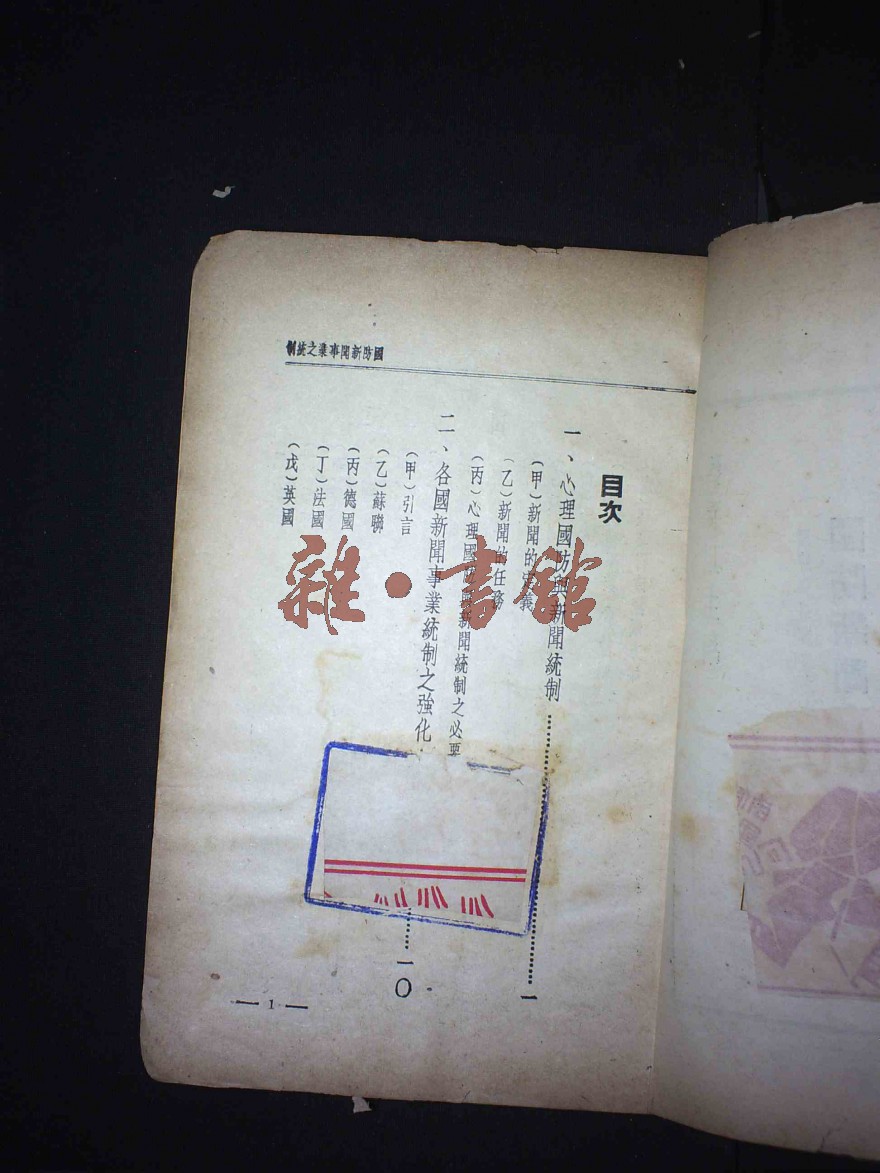 國防新聞事業之統制
目次
一、心理國防與新聞統制……一
(甲)新聞的定義
(乙)新聞的任務
(丙)心理國防與新聞統制之必要
二、各國新聞事業統制之強化……一〇
(甲)引言
(乙)蘇聯
(丙)德國
(丁)法國
(戊)英國
— 1 —
雜·書館